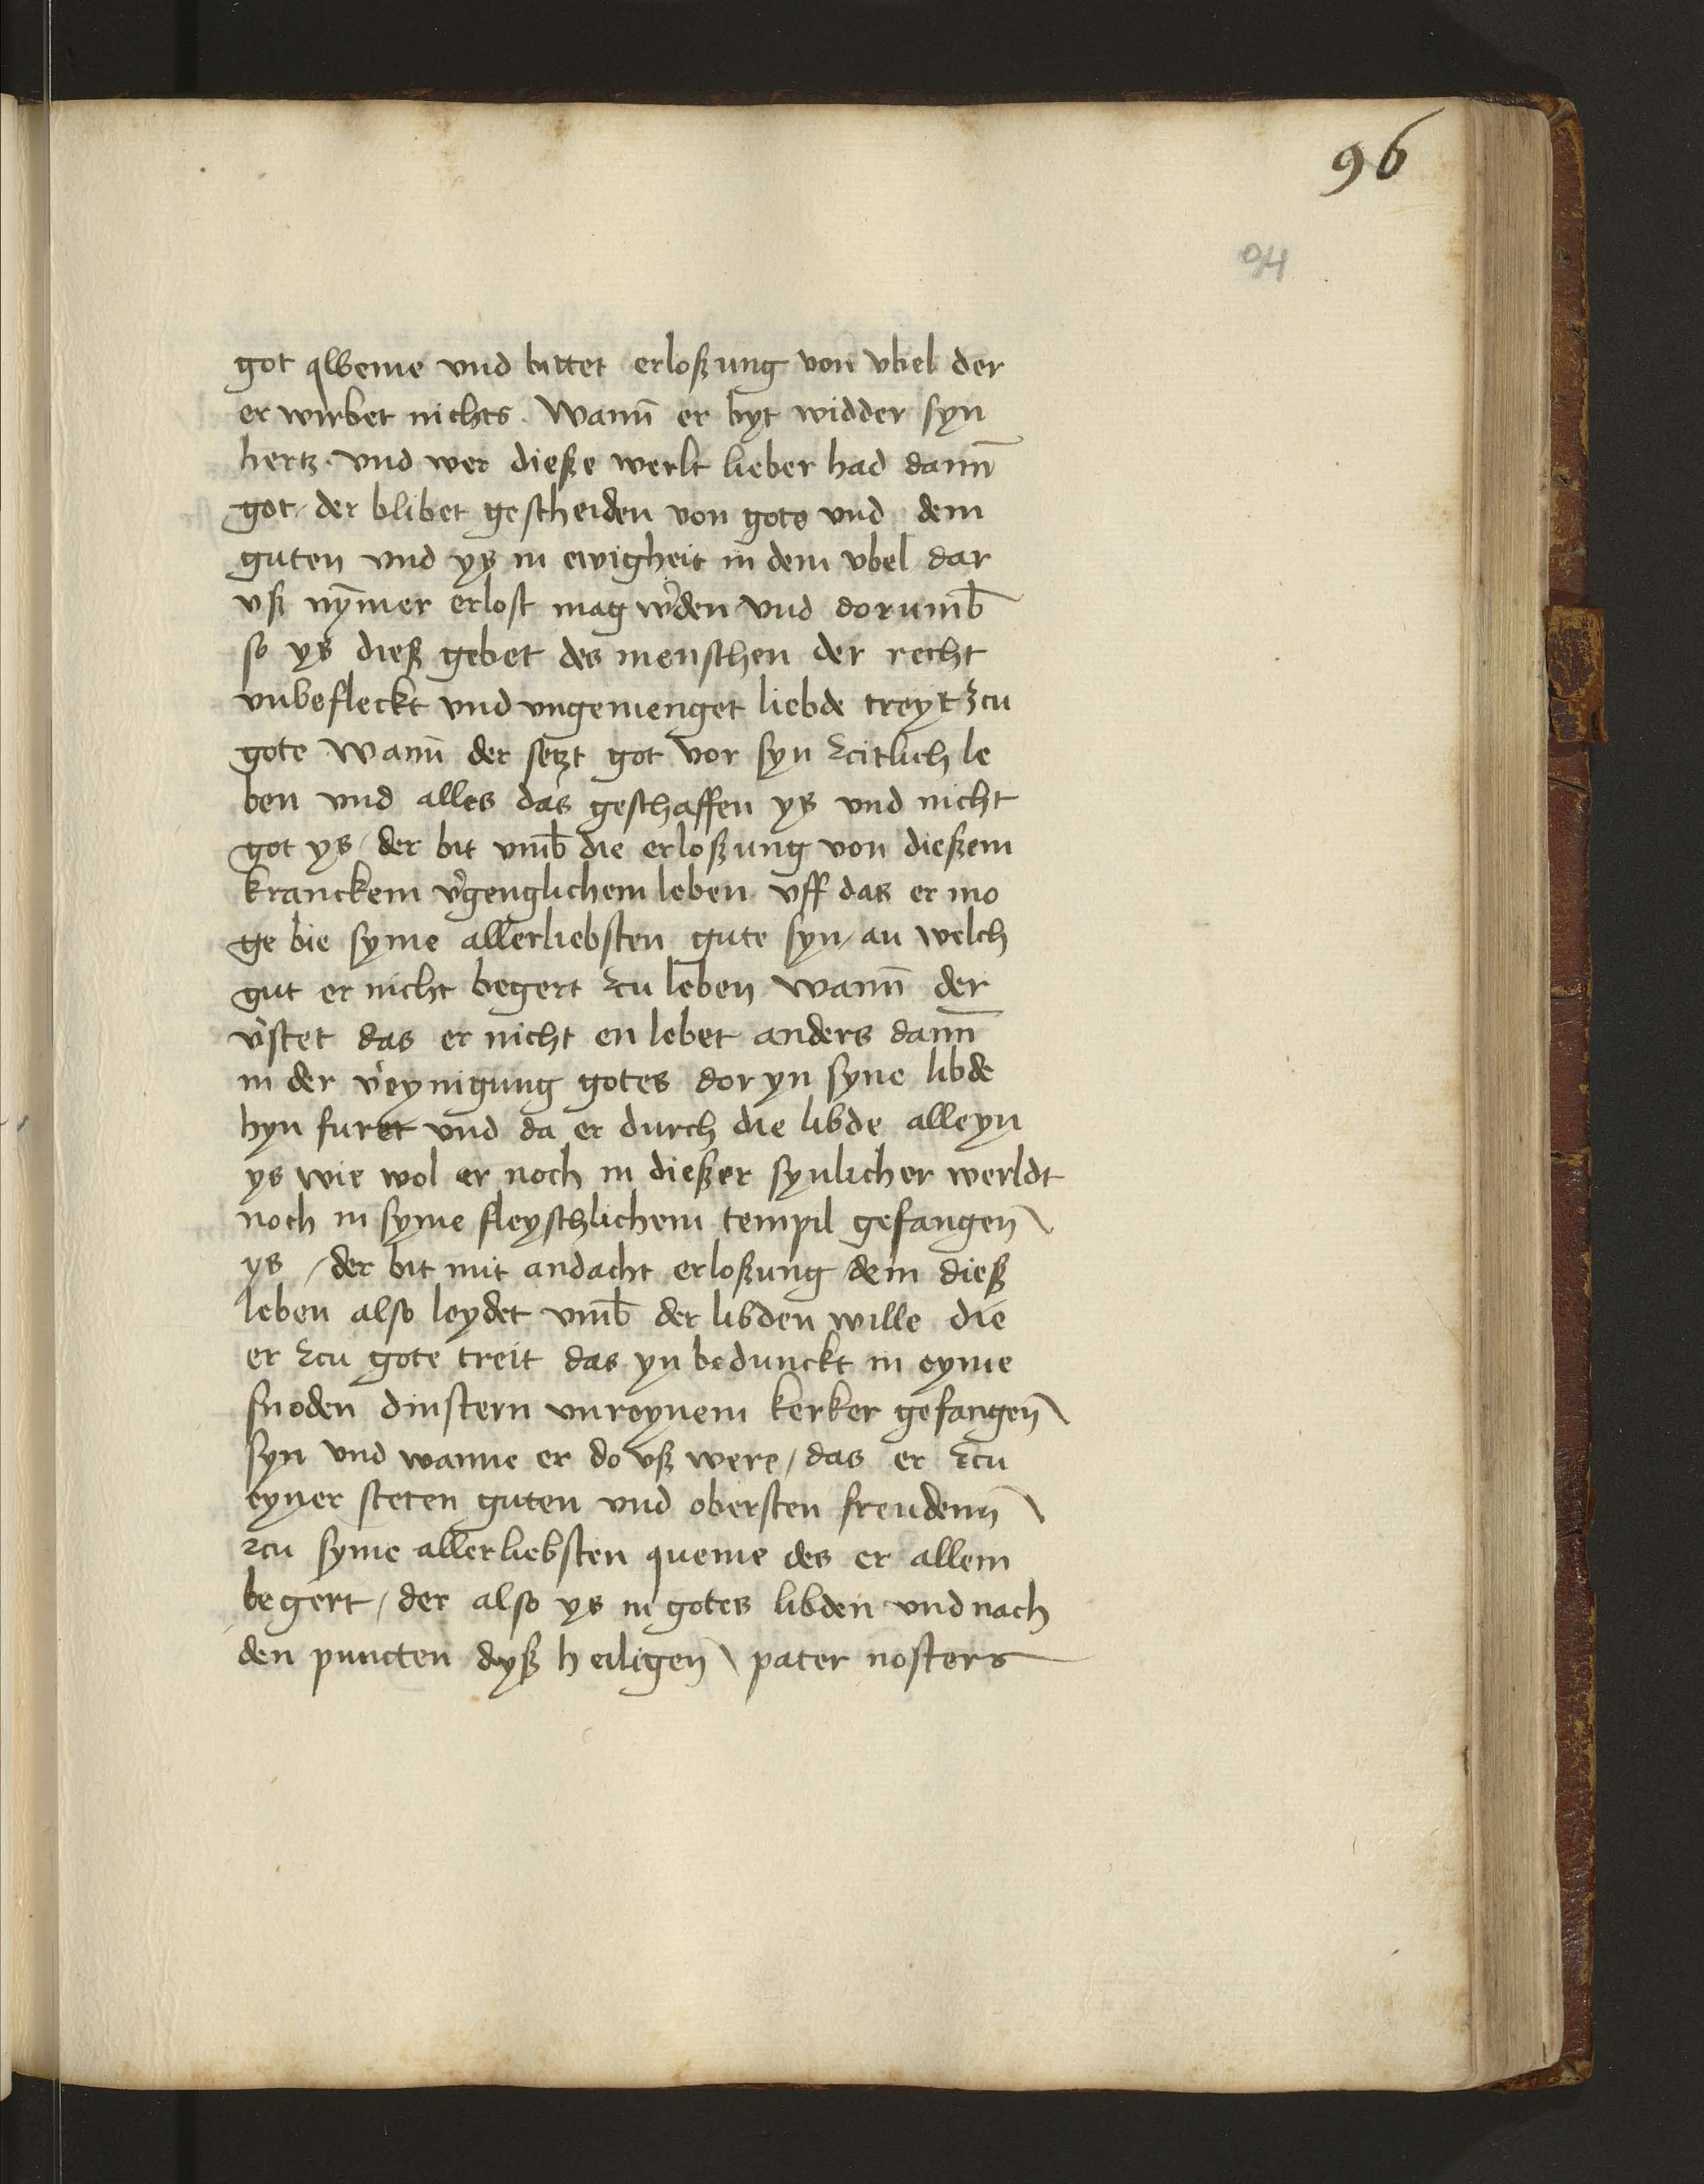 96
94
got qweme vnd bittet erloßung von vbel der
er wirbet nichts. Wann̄ er byt widder syn
hertz. vnd wer dieße werlt lieber had dann̄
got / der blibet gescheiden von gote vnd dem
guten vnd yß in ewigheit in dem vbel dar
vß nȳmer erlost mag w'den vnd dorumb̄
so ys dieß gebet des menschen der recht
vnbefleckt vnd vngemenget liebde treyt zcu
gote Wann̄ der setzt got vor syn zcitlich le
ben vnd alles das geschaffen ys vnd nicht
got ys / der bit vmb̄ die erloßung von dießem
kranckem v'genglichem leben vff das er mo
ge bie syme allerliebsten gute syn / an welch
gut er nicht begert zcu leben wann̄ der
v'stet das er nicht en lebet anders dann̄
in der v'eynigung gotes dor yn syne libde
hyn furet vnd da er durch die libde alleyn
ys wie wol er noch in dießer synlicher werldt
noch in syme fleyschlichem tempil gefangen̄
ys / der bit mit andacht erloßung dem dieß
leben also leydet vmb̄ der libden wille die
er zcu gote treit das yn bedunckt in eyme
snoden dinstern vnreynem kerker gefangen̄
syn vnd wanne er do vß were / das er zcu
eyner steten guten vnd obersten freudenn̄
zcu syme allerliebsten queme des er allein
begert / der also ys in gotes libden vnd nach
den puncten dyß heiligen̄ pater nosters